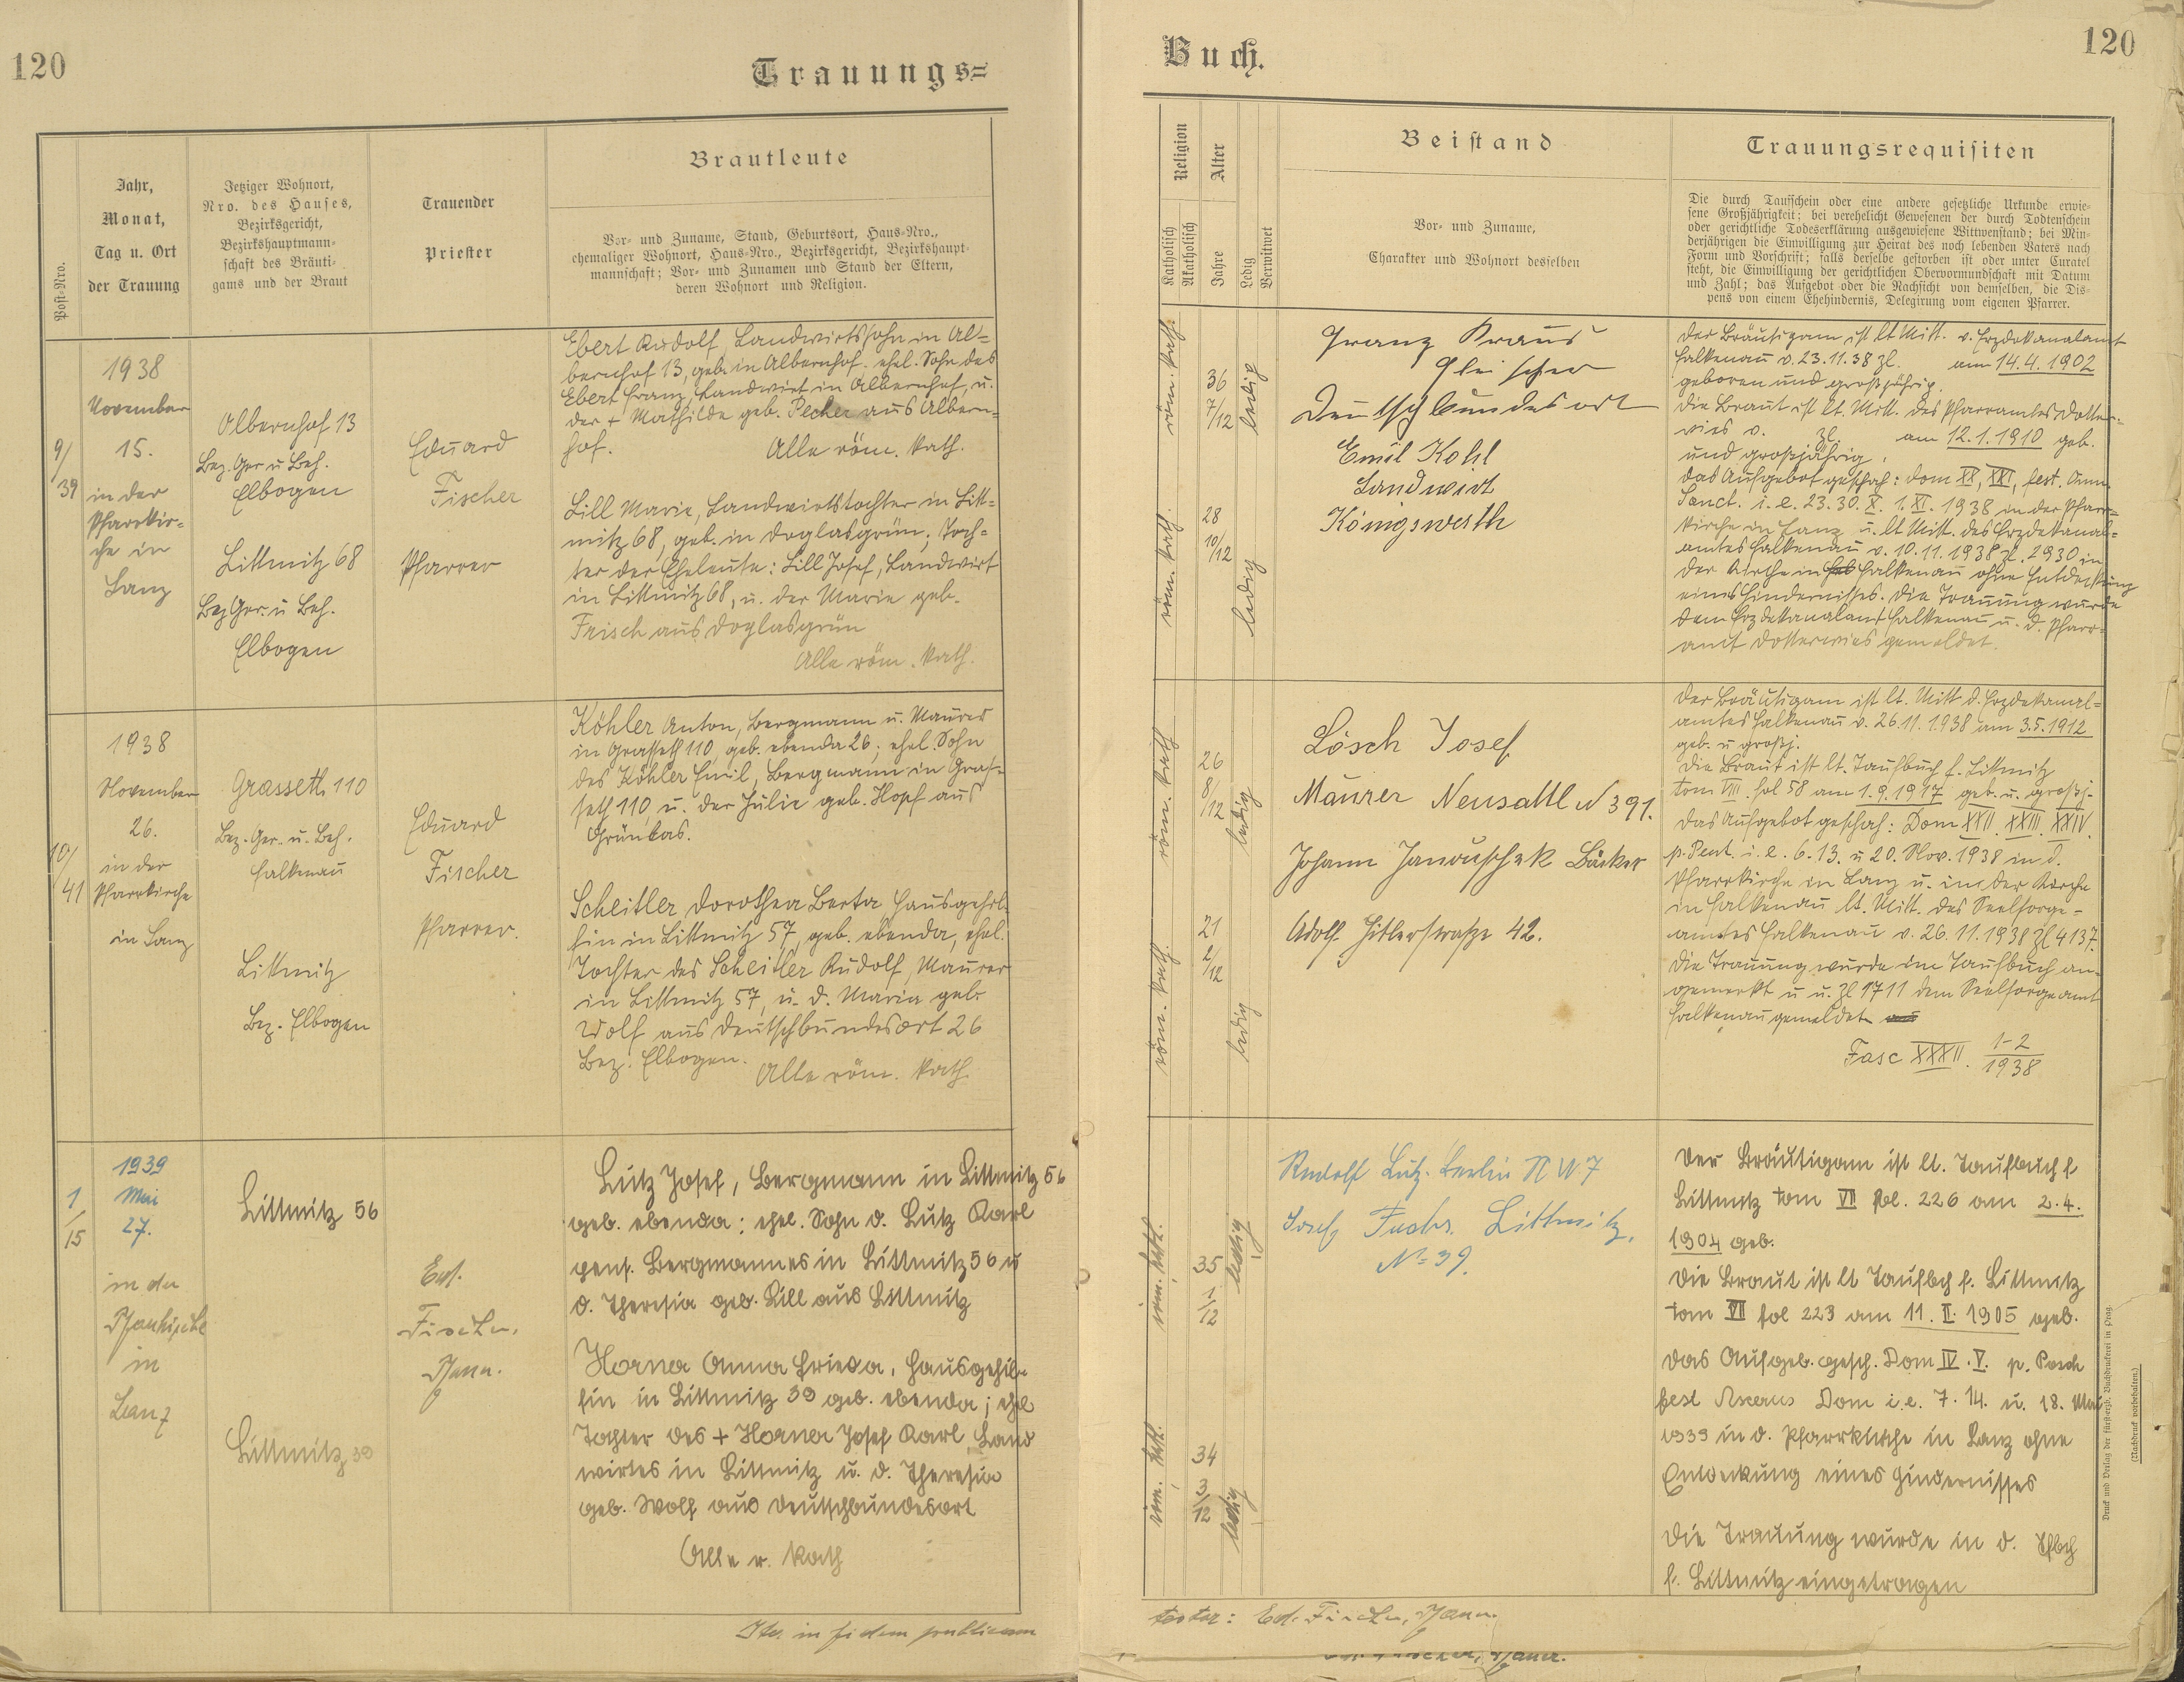 120
Trauungs=
Post=Nro.
Jahr,
Monat,
Tag u. Ort
der Trauung
Jetziger Wohnort,
Nro. des Hauses,
Bezirksgericht,
Bezirkshauptmann=
schaft des Bräuti=
gams und der Braut
Trauender
Priester
Brautleute
Vor= und Zuname, Stand, Geburtsort, Haus=Nro.,
ehemaliger Wohnort, Haus=Nro., Bezirksgericht, Bezirkshaupt=
mannschaft; Vor= und Zunamen und Stand der Eltern,
deren Wohnort und Religion.
9/
39
1938
November
15.
in der
Pfarrkir=
che in
Lanz
Albernhof 13
Bez. Ger u Beh.
Elbogen
Littmitz 68
Bez Ger. u Beh.
Elbogen
Eduard
Fischer
Pfarrer
Ebert Rudolf, Landwirtssohn in Al=
bernhof 13, geb. in Albernhof, ehel. Sohn des
Ebert Franz, Landwirt in Albernhof, u.
der + Mathilde geb. Pecher aus Albern=
hof. Alle röm. kath.
Lill Marie, Landwirtstochter in Litt=
mitz 68, geb. in Doglasgrün; Toch=
ter der Eheleute: Lill Josef, Landwirt
in Littmitz 68, u. der Marie geb.
Frisch aus Doglasgrün
Alle röm. kath.
10/
41
1938
November
26.
in der
Pfarrkirche
in Lanz
Grasseth 110
Bez. Ger. u. Beh.
Falkenau
Littmitz
Bez. Elbogen
Eduard
Fischer
Pfarrer.
Köhler Anton, Bergmann u. Maurer
in Grasseth 110, geb. ebenda 26; ehel. Sohn
des Köhler Emil, Bergmann in Gras=
seth 110, u. der Julie geb. Hopf aus
Grünlas.
Scheitler Dorothea Berta Hausgehil=
fin in Littmitz 57, geb. ebenda, ehel.
Tochter des Scheitler Rudolf, Maurer
in Littmitz 57, u. d. Maria geb.
Wolf aus Deutschbundesort 26
Bez. Elbogen.
Alle röm. kath.
1
/
15
1939
Mai
27.
in der
Pfarrkirche
in
Lanz
Littmitz 56
Littmitz 39
Ed.
Fischer,
Pfarr.
Lutz Josef, Bergmann in Littmitz 56
geb. ebenda; ehel. Sohn d. Lutz Karl
pens. Bergmannes in Littmitz 56 u
d. Theresia geb. Lill aus Littmitz
Horner Anna Frieda, Hausgehil=
fin in Littmitz 39 geb. ebenda; ehel
Tochter des + Horner Josef Karl Land
wirtes in Littmitz u. d. Theresia
geb. Wolf aus Deutschbundesort
Alle r. kath
in fidem publicam
Buch.
120
Religion
Katholisch
Akatholisch
Alter
Jahre
Ledig
Verwitwet
Beistand
Vor= und Zuname,
Charakter und Wohnort desselben
Trauungsrequisiten
Die durch Taufschein oder eine andere gesetzliche Urkunde erwie=
sene Großjährigkeit; bei verehelicht Gewesenen der durch Todtenschein
oder gerichtliche Todeserklärung ausgewiesene Wittwenstand; bei Min=
derjährigen die Einwilligung zur Heirat des noch lebenden Vaters nach
Form und Vorschrift; falls derselbe gestorben ist oder unter Curatel
steht, die Einwilligung der gerichtlichen Obervormundschaft mit Datum
und Zahl; das Aufgebot oder die Nachsicht von demselben, die Dis=
pens von einem Ehehindernis, Delegirung vom eigenen Pfarrer.
röm. kath.
36
7/12
ledig
röm. kath.
28
10/12
ledig
Franz Kraus
Fleischer
Deutschbundesort
Emil Kohl
Landwirt
Königswerth
Der Bräutigam ist lt Mitt. v. Erzdekanalamt
Falkenau v. 23.11.38 Zl. am 14.4.1902
geboren und großjährig.
Die Braut ist lt. Mitt. des Pfarramtes Dotter=
wies v. Zl. am 12.1.1910 geb.
und großjährig.
Das Aufgebot geschah: Dom XX, XXI, fest. Omn.
Sanct. i. e. 23. 30. X. 1. XI. 1938 in der Pfarr=
kirche in Lanz u. lt Mitt. des Erzdekanal=
amtes Falkenau v. 10.11.1938 Zl. 2930 in
der Kirche in Falkenau ohne Entdeckung
eines Hindernisses. Die Trauung wurde
dem Erzdekanalamt Falkenau u. d. Pfarr=
amt Dotterwies gemeldet.
röm. kath
26
8/
12
ledig
röm. kath.
21
2/
12
ledig
Lösch Josef
Maurer Neusattl N 391.
Johann Janouschek Bäcker
Adolf Hitlerstraße 42.
Der Bräutigam ist lt. Mitt d. Erzdekanal=
amtes Falkenau v. 26.11.1938 am 3.5.1912
geb. u großj.
Die Braut ist lt. Taufbuch f. Littmitz
tom VIII. fol 58 am 1.9.1917 geb. u. großj.
Das Aufgebot geschah: Dom XXII. XXIII. XXIV.
p. Pent. i. e. 6. 13. u 20. Nov. 1938 in d.
Pfarrkirche in Lanz u. in der Kirche
in Falkenau lt. Mitt. des Seelsorge=
amtes Falkenau v. 26.11.1938 Zl 4137.
Die Trauung wurde im Taufbuch an=
gemerkt u u. Zl 1711 dem Seelsorgeamt
Falkenau gemeldet
Fasc XXXII. 1-2
1938
röm. kath.
35
1
12
ledig
röm. kath.
34
3
12
ledig
Rudolf Lutz. Berlin N W 7
Josef Fuchs. Littmitz,
N= 39.
Der Bräutigam ist lt. Taufbuch f
Littmitz tom VII fol. 226 am 2.4.
1904 geb.
Die Braut ist lt Taufbch f. Littmitz
tom VI fol 223 am 11. II. 1905 geb.
Das Aufgeb. gesch. Dom IV. V. p. Pasch
fest Ascens Dom i. e. 7. 14. u. 18. Mai
1939 in d. Pfarrkirche in Lanz ohne
Entdeckung eines Hindernisses
Die Trauung wurde in d. Tfbch
f. Littmitz eingetragen
testor: Ed. Fischer, Pfarr.
Druck und Verlag der fürsterzb. Buchdruckerei in Prag.
(Nachdruck vorbehalten.)